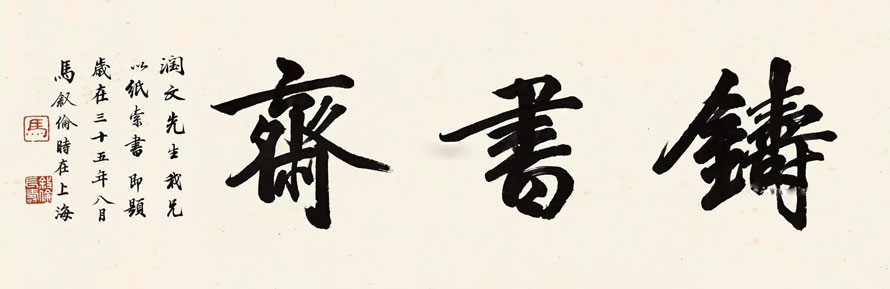 鑄書齋
润文先生我兄
以紙索書即題
歲在三十五年八月
馬叙倫時在上海
馬